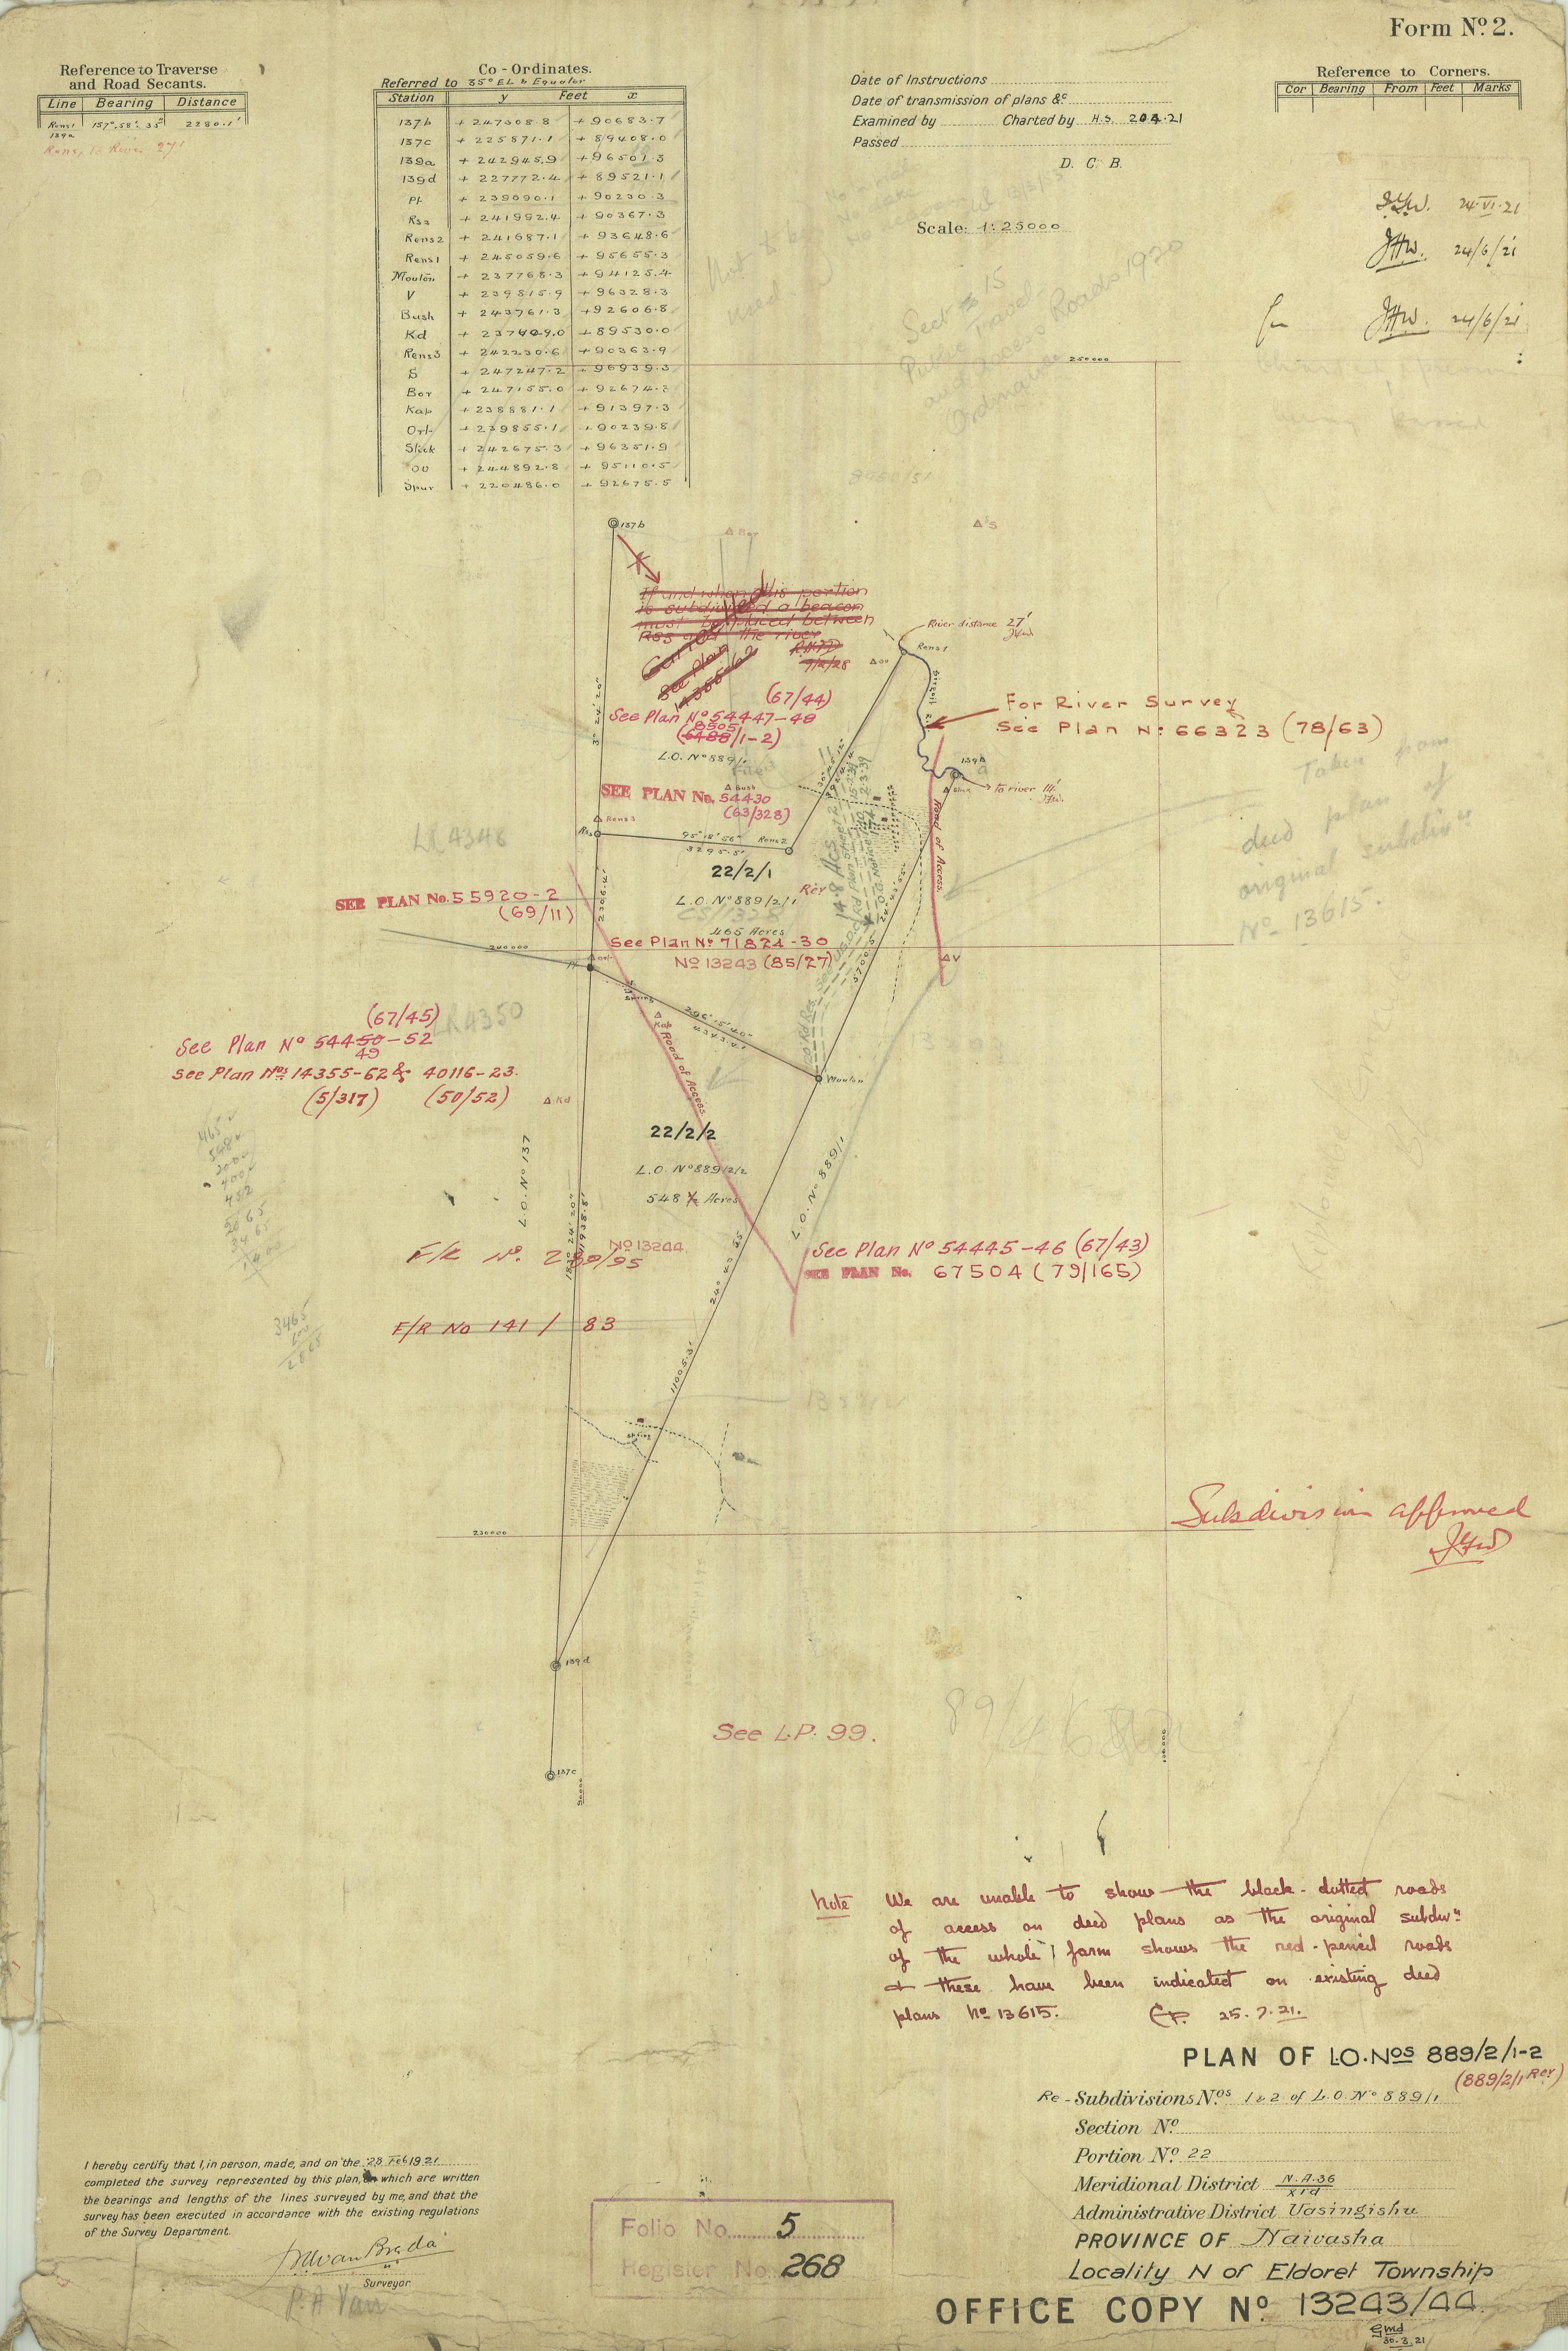 Form No. 2.
Reference to Traverse
and Road Secants.
Line Bearing Distance
Rens1 157°.58'.35" 2280.1'
139a
Rens, to River 27'
Co-Ordinates.
Referred to 35° E.L. & Equator
Station y Feet x
137b +247308.8 +90683.7
137c +225871.1 +89408.0
139a +242945.9 +96501.3
139d +227772.4 +89521.1
Pt +239090.1 +90230.3
Rs3 +241992.4 +90367.3
Rens2 +241687.1 +93648.6
Rens1 +245059.6 +95655.3
Mouton +237768.3 +94125.4
V +239815.9 +96328.3
Bush +243761.3 +92606.8
Kd +237409.0 +89530.0
Rens3 +242230.6 +90363.9
S +247247.2 +96939.3
Bor +247155.0 +92674.3
Kap +238881.1 +91397.3
Orl- +239855.1 +90239.8
Slick +242675.3 +96351.9
OU +244892.8 +95110.5
Spur +220486.0 +92675.5
Date of Instructions
Date of transmission of plans &c
Examined by Charted by H.S. 20.4.21
Passed
D. C. B.
Scale: 1:25000
Reference to Corners.
Cor Bearing From Feet Marks
24.VI.21
JHW. 24/6/21
for JHW. 24/6/21
Sect 15
Public Travel
and Access Roads 1920
Ordinance
8950/51
250000
137b
Bor
S
If and when this portion
is subdivided a beacon
must be placed between
Rs3 and the river
9/2/28
Cancelled
See Plan
14355-62
River distance 27'
Rens1
OU
(67/44)
See Plan No 54447-48
8505
(6488/1-2)
L.O. No 889/1
For River Survey
See Plan No 66323 (78/63)
Sirgoit R.
139a
To river 14'
Slick
Bush
SEE PLAN No. 54430
(63/328)
3° 24' 20"
Rens3
Rs3
95° 18' 56"
3295.5'
Rens2
LR 4348
22/2/1
L.O. No 889/2/1 Rev
465 Acres
14.8 Acs
Road of Access.
Taken from
deed plan of
original subdivn
No 13615.
SEE PLAN No. 55920-2
(69/11)
2306.4'
See Plan No 71824-30
No 13243 (85/27)
240000
Orl-
Pt
Spring
296° 15' 40"
4343.4'
5700.5'
V
LR 4350
(67/45)
See Plan No 54450-52
49
See Plan Nos 14355-62 & 40116-23.
(5/317) (50/52)
Kap
Road of Access
Mouton
Kd
22/2/2
L.O. No 889/2/2
548 ½ Acres
L.O. No 137
L.O. No 889/1
183° 24' 20"
11938.8'
465
548
3465
No 13244
F/R No. 289/95
See Plan No 54445-46 (67/43)
SEE PLAN No. 67504 (79/165)
F/R No 141/83
11005.3'
Spring
230000
Subdivision approved
JHW
139d
137c
90000
See L.P. 99.
Note We are unable to show the black-dotted roads
of access on deed plans as the original subdivn
of the whole farm shows the red-pencil roads
& these have been indicated on existing deed
plans No 13615. 25.7.21.
PLAN OF L.O. Nos 889/2/1-2
(889/2/1 Rev)
Re-Subdivisions Nos 1 & 2 of L.O. No 889/1
Section No.
Portion No. 22
Meridional District N.A.36
XId
Administrative District Uasingishu
PROVINCE OF Naivasha
Locality N of Eldoret Township
OFFICE COPY No. 13243/44
gmd
30.3.21
I hereby certify that I, in person, made, and on the 28 Feb 1921
completed the survey represented by this plan, on which are written
the bearings and lengths of the lines surveyed by me, and that the
survey has been executed in accordance with the existing regulations
of the Survey Department.
Surveyor
Folio No. 5
Register No. 268